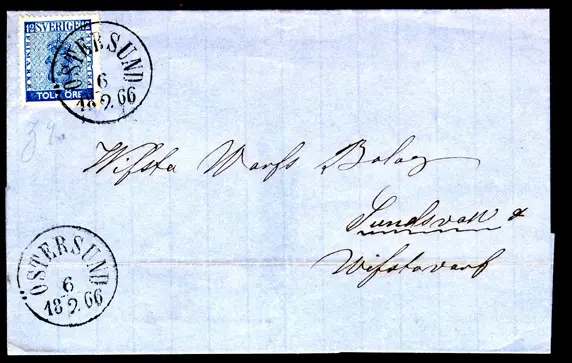 12 SVERIGE 12
TOLF ÖRE
ÖSTERSUND
6
18 9. 66
Wifsta Warfs Bolag
Sundsvall &
Wifstavarf
ÖSTERSUND
6
18 9. 66